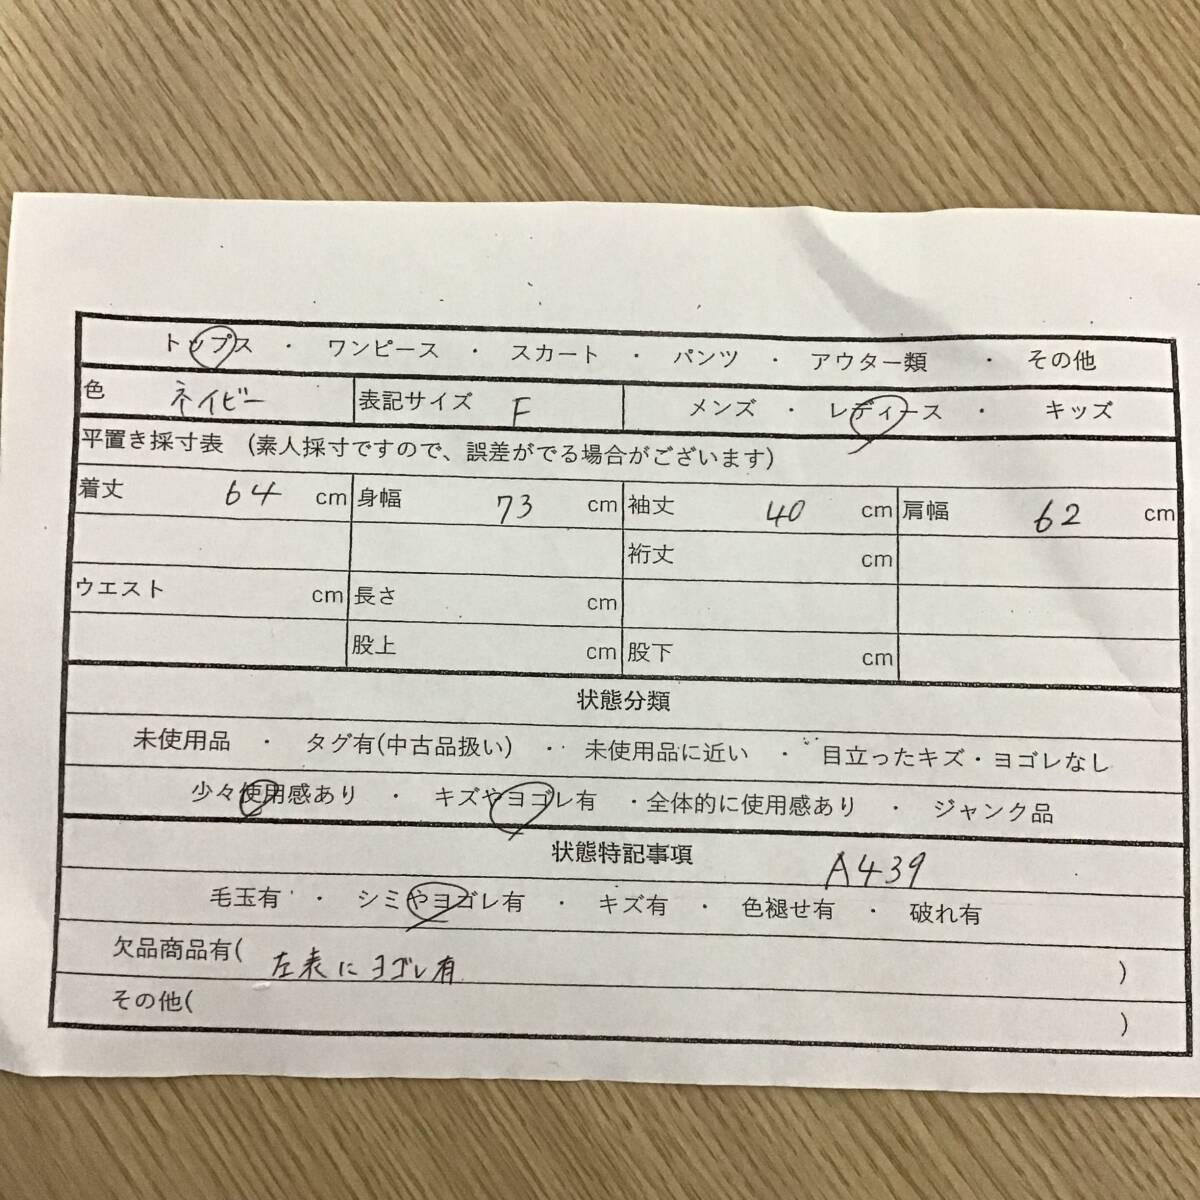 トップス ・ ワンピース ・ スカート ・ パンツ ・ アウター類 ・ その他
色 ネイビー 表記サイズ F メンズ ・ レディース ・ キッズ
平置き採寸表 (素人採寸ですので、誤差がでる場合がございます)
着丈 64 cm 身幅 73 cm 袖丈 40 cm 肩幅 62 cm
裄丈 cm
ウエスト cm 長さ cm
股上 cm 股下 cm
状態分類
未使用品 ・ タグ有(中古品扱い) ・ 未使用品に近い ・ 目立ったキズ・ヨゴレなし
少々使用感あり ・ キズやヨゴレ有 ・全体的に使用感あり ・ ジャンク品
状態特記事項 A439
毛玉有 ・ シミやヨゴレ有 ・ キズ有 ・ 色褪せ有 ・ 破れ有
欠品商品有( 左表にヨゴレ有 )
その他( )